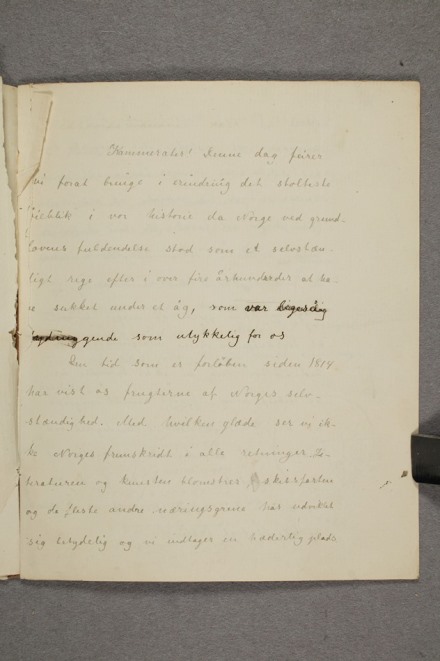 Kammerater! Denne dag feirer
vi forat bringe i erindring det stolteste
øieblik i vor historie da Norge ved grund-
lovens fuldendelse stod som et selvstæn-
digt rige efter i over fire århundreder at ha-
ve sukket under et åg, som var
gende som ulykkelig for os
Den tid som er forløben siden 1814
har vist os frugterne af Norges selv-
stændighed. Med hvilken glæde ser vi ik-
ke Norges fremskridt i alle retninger. Li-
teraturen og kunsten blomstrer, skibsfarten
og de fleste andre næringsgrene har udviklet
sig betydelig og vi indtager en hæderlig plads